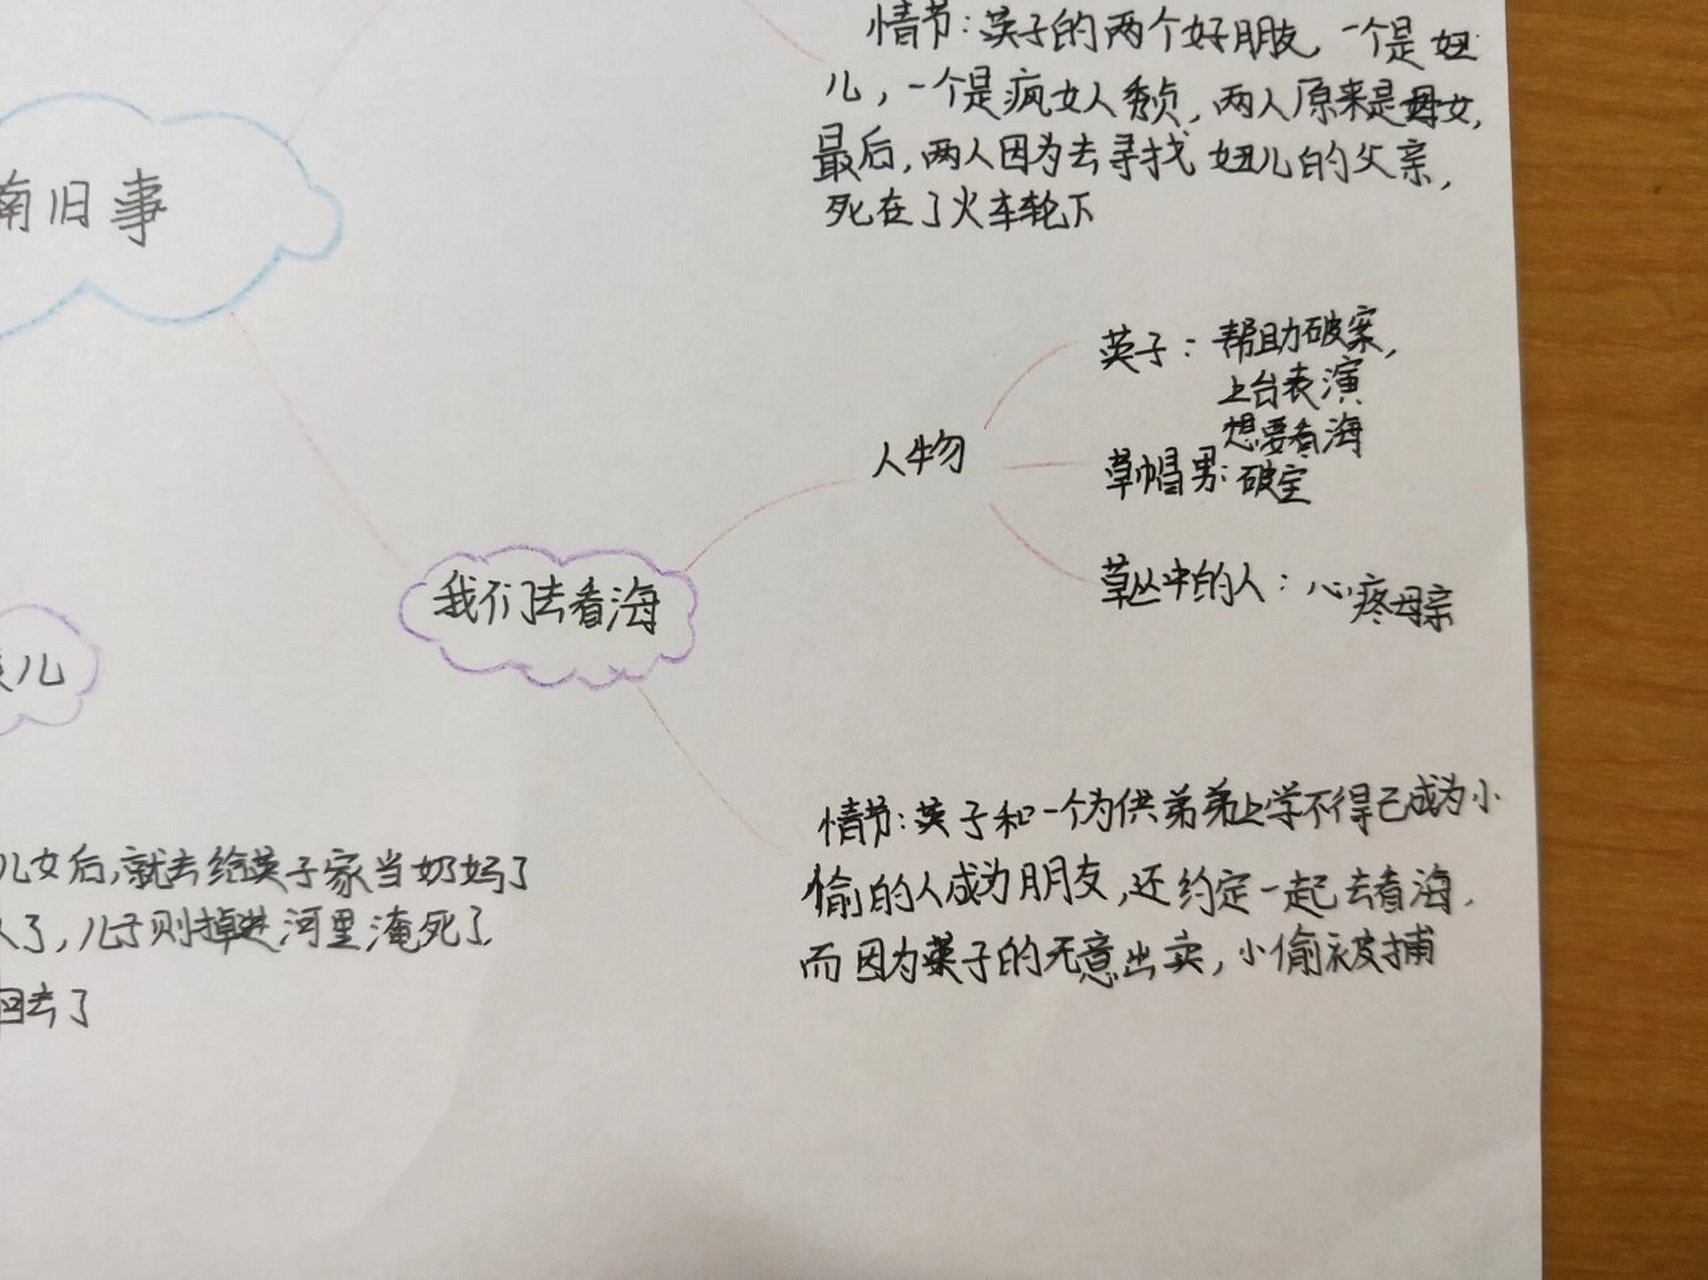 情节：英子的两个好朋友，一个是妞
儿，一个是疯女人秀贞，两人原来是母女，
最后，两人因为去寻找妞儿的父亲，
死在了火车轮下
南旧事
人物
英子：帮助破案，
上台表演
想要看海
草帽男：破案
草丛中的人：心疼母亲
我们去看海
儿
情节：英子和一个为供弟弟上学不得已成为小
偷的人成为朋友，还约定一起去看海，
而因为英子的无意出卖，小偷被捕
儿女后，就去给英子家当奶妈了
了，儿子则掉进河里淹死了
回去了